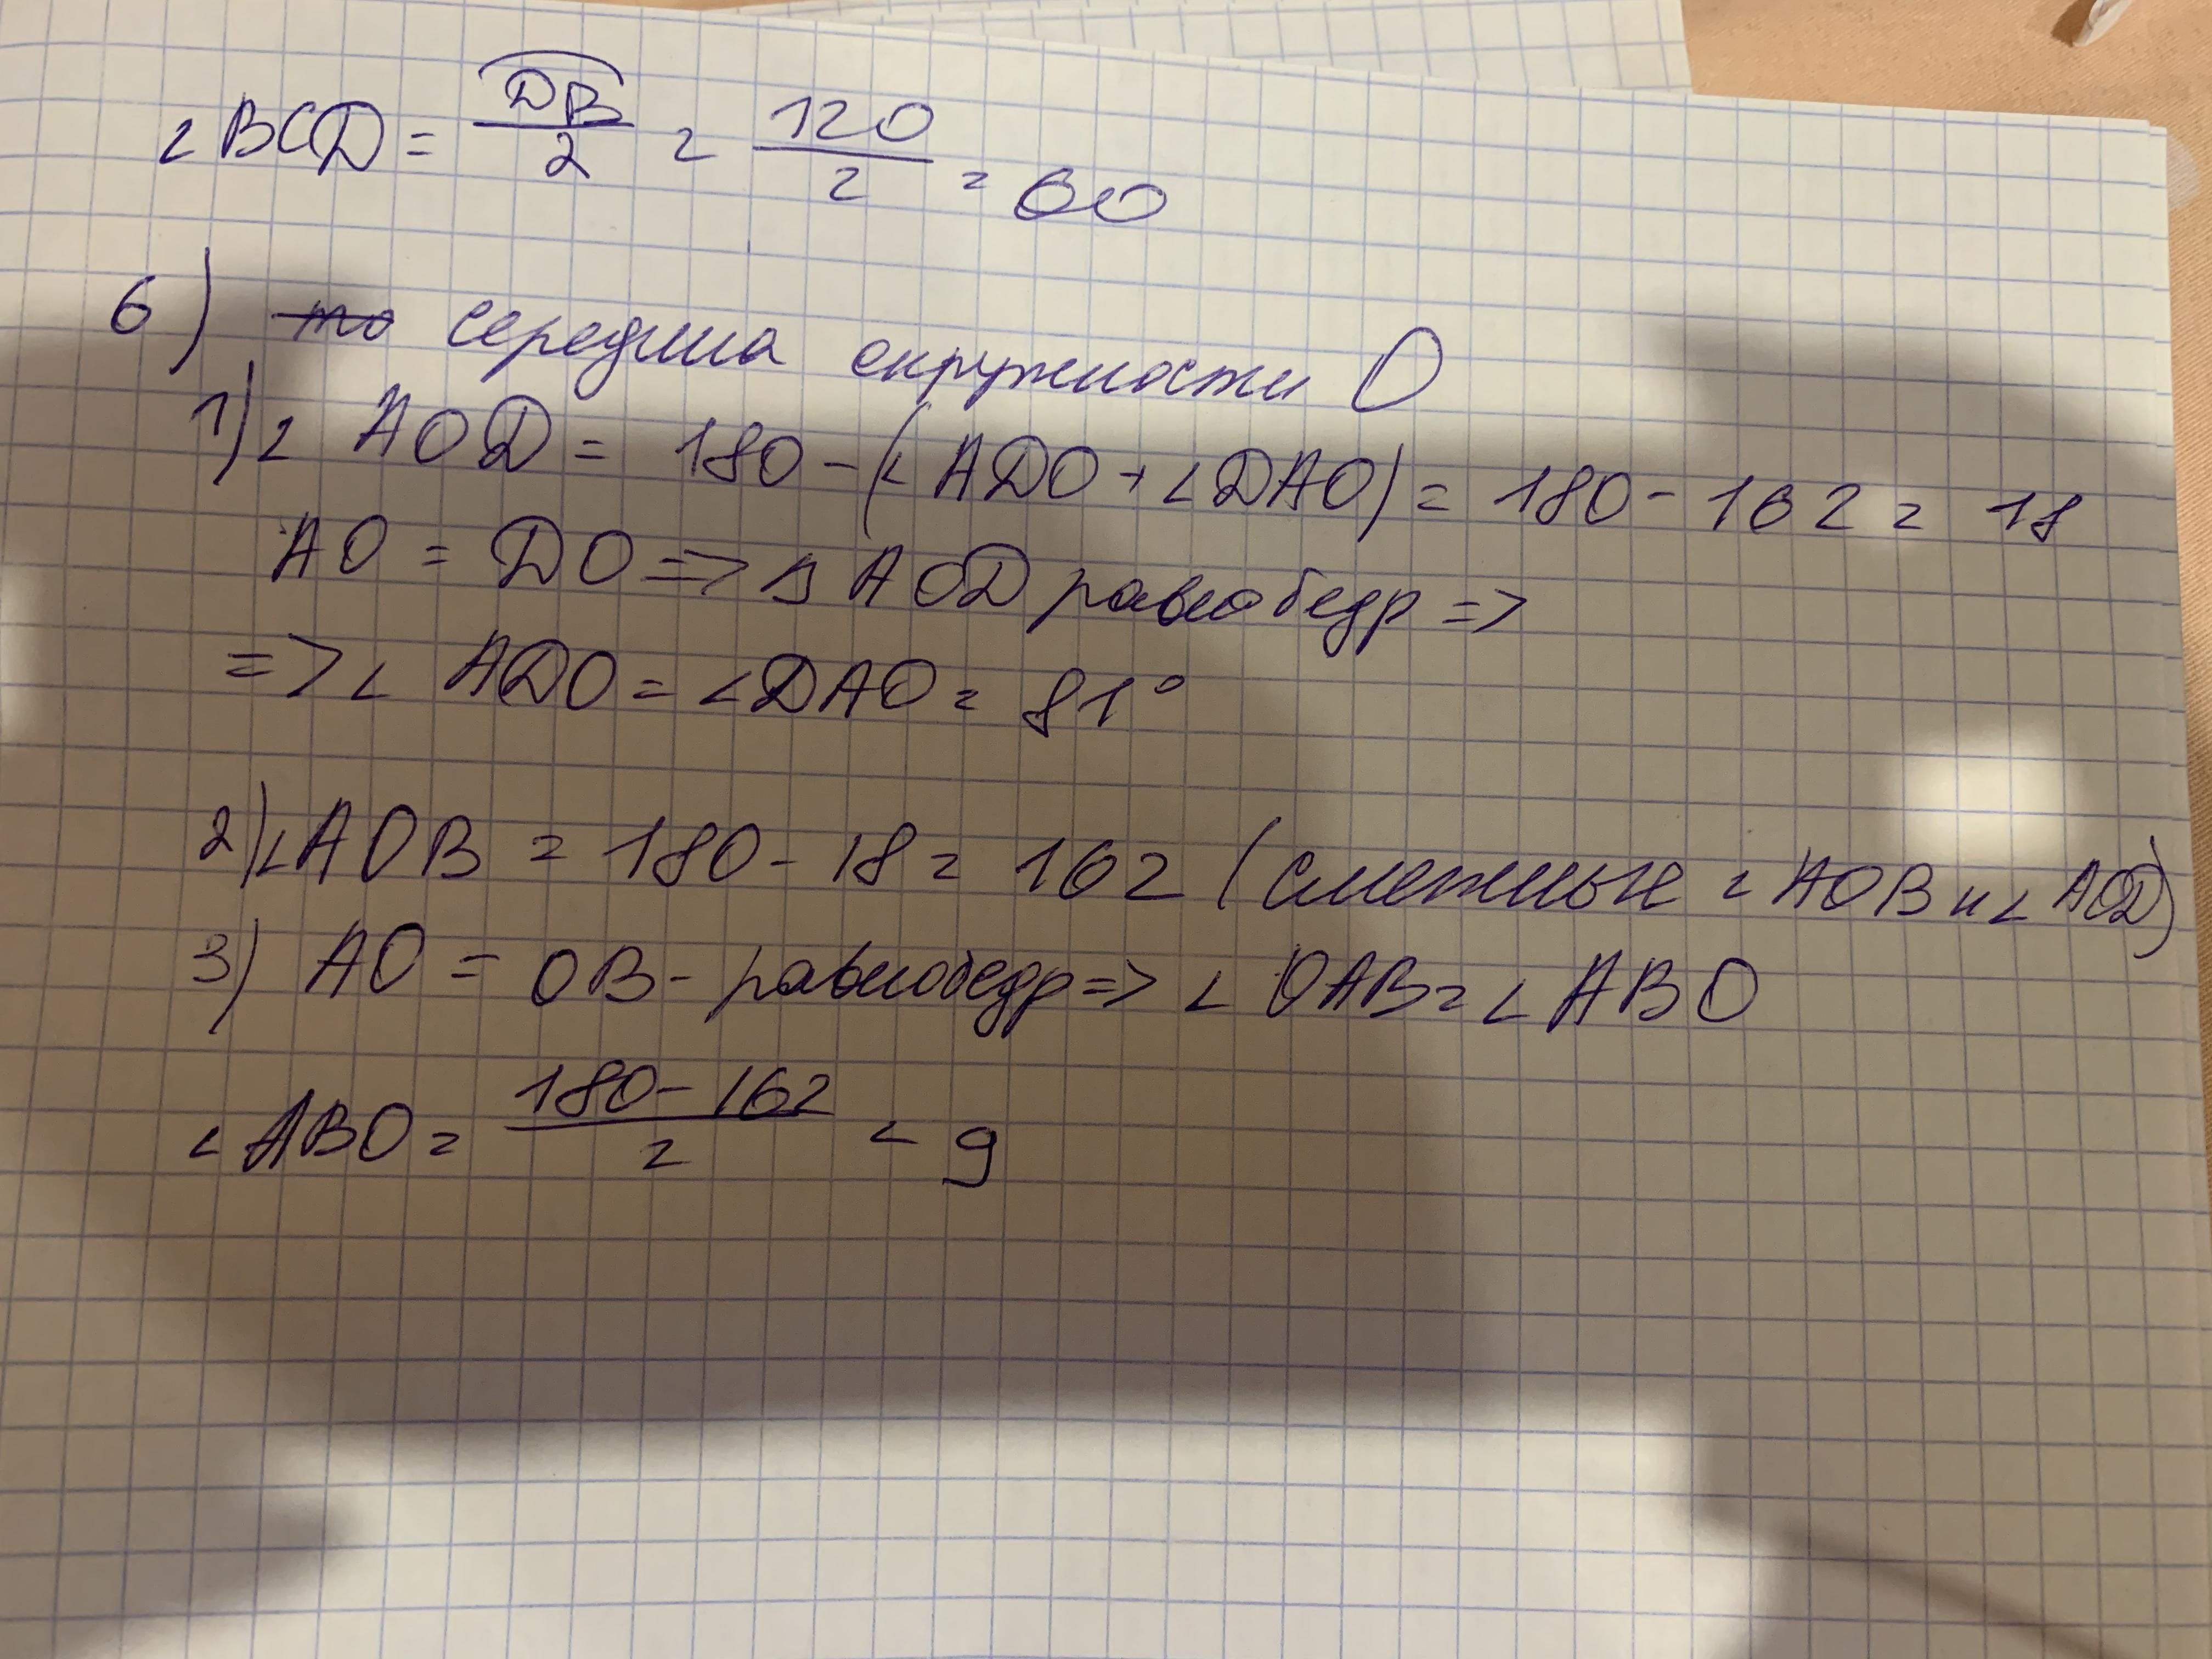 ∠BCD = DB/2 = 120/2 = 60
6) то середина окружности О
1) ∠ AOD = 180 - (∠ ADO + ∠DAO) = 180 - 162 = 18
AO = DO => Δ AOD равнобедр =>
=> ∠ ADO = ∠DAO = 81°
2) ∠AOB = 180 - 18 = 162 (смежные ∠ AOB и ∠ AOD)
3) AO = OB - равнобедр => ∠ OAB = ∠ ABO
∠ ABO = 180 - 162/2 = 9